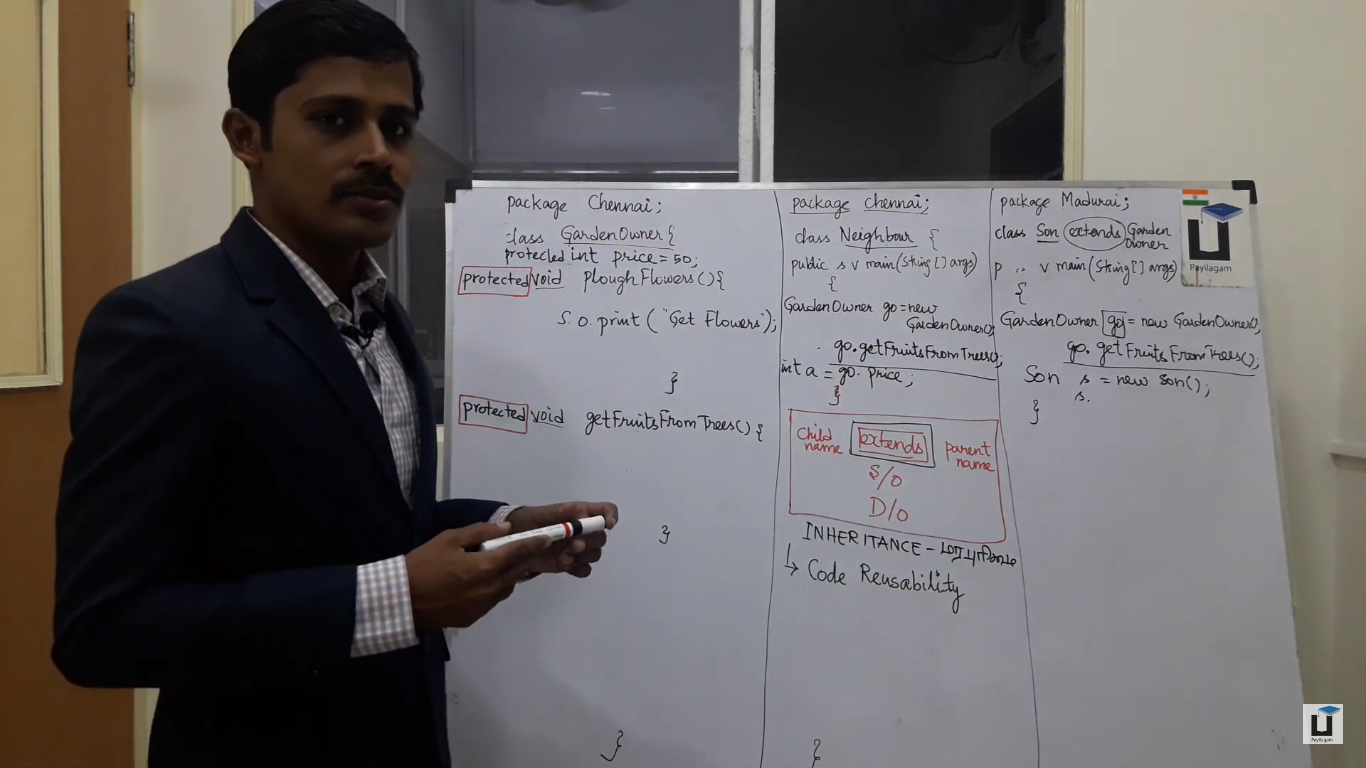 package Chennai;
class GardenOwner {
protected int price = 50;
protected void ploughFlowers() {
S.O.print ("Get Flowers");
}
protected void getFruitsFromTrees() {
}
}
package Chennai;
class Neighbour {
public s v main(String[] args)
{
GardenOwner go = new
GardenOwner();
go.getFruitsFromTrees();
int a = go.price;
}
Child name extends parent name
S/O
D/O
INHERITANCE -
↳ Code Reusability
}
package Madurai;
class Son extends Garden
Owner
p .. v main(String[] args)
{
GardenOwner go = new GardenOwner();
go.getFruitsFromTrees();
Son s = new Son();
s.
}
Payilagam
Payilagam